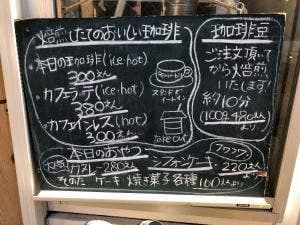 焙煎したてのおいしい珈琲
本日の珈琲(ice・hot)
300えん
カフェラテ(ice・hot)
380えん
カフェインレス(hot)
300えん
スタンド
イートイン
Take Out
珈琲豆
ご注文頂いて
から焙煎
いたします!
約10分
(100g 480えん
より
本日のおやつ
人気! カヌレ 280えん
フワフワ シフォンケーキ 220えん
より
その他 ケーキ 焼き菓子各種 160えんより